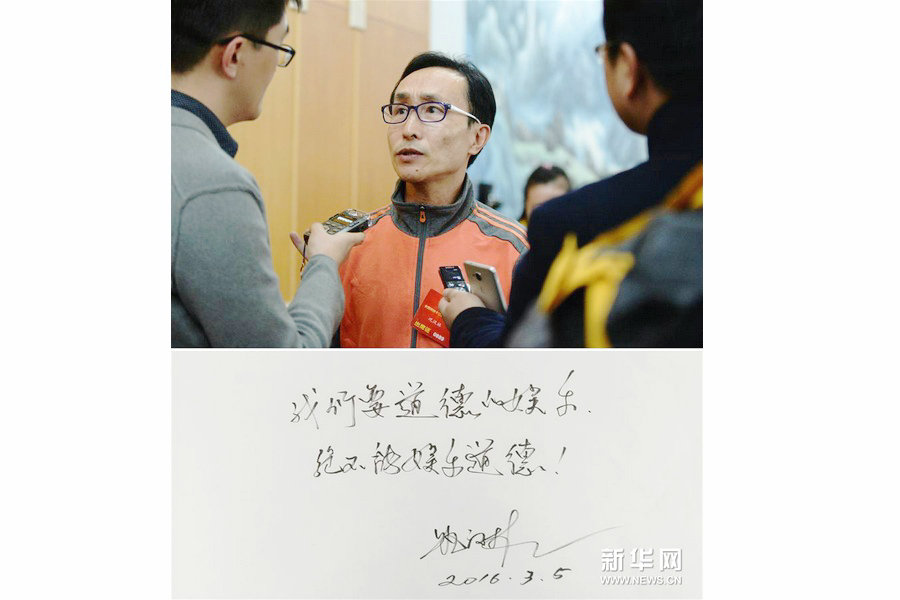 0609
我们要道德的娱乐.
绝不能娱乐道德!
2016.3.5
新华网
WWW.NEWS.CN